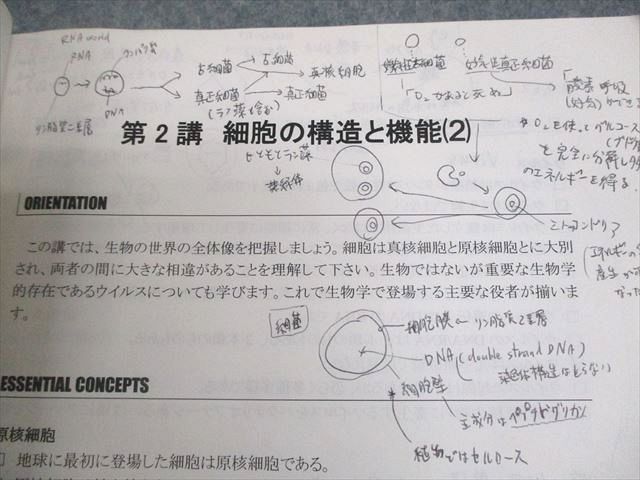 RNA world
RNA
タンパク質
DNA
リン脂質二重層
古細菌
真正細菌
(ラン藻(含む))
古細菌
真核細胞
真正細菌
嫌気性古細菌
好気性真正細菌
「O₂があると死ぬ」
「酸素呼吸
(好気)ができる
O₂を使ってグルコース
(ブドウ
を完全に分解し
のエネルギーを得る
第2講 細胞の構造と機能(2)
もともとラン藻
葉緑体
ミトコンドリア
ORIENTATION
この講では、生物の世界の全体像を把握しましょう。細胞は真核細胞と原核細胞とに大別
され、両者の間に大きな相違があることを理解して下さい。生物ではないが重要な生物学
的存在であるウイルスについても学びます。これで生物学で登場する主要な役者が揃いま
す。
(エネルギーの
産生が
なった
細菌
細胞膜 リン脂質2重層
DNA (double strand DNA)
染色体構造はとらない
* 細胞壁
主成分はペプチドグリカン
植物ではセルロース
ESSENTIAL CONCEPTS
原核細胞
□ 地球に最初に登場した細胞は原核細胞である。